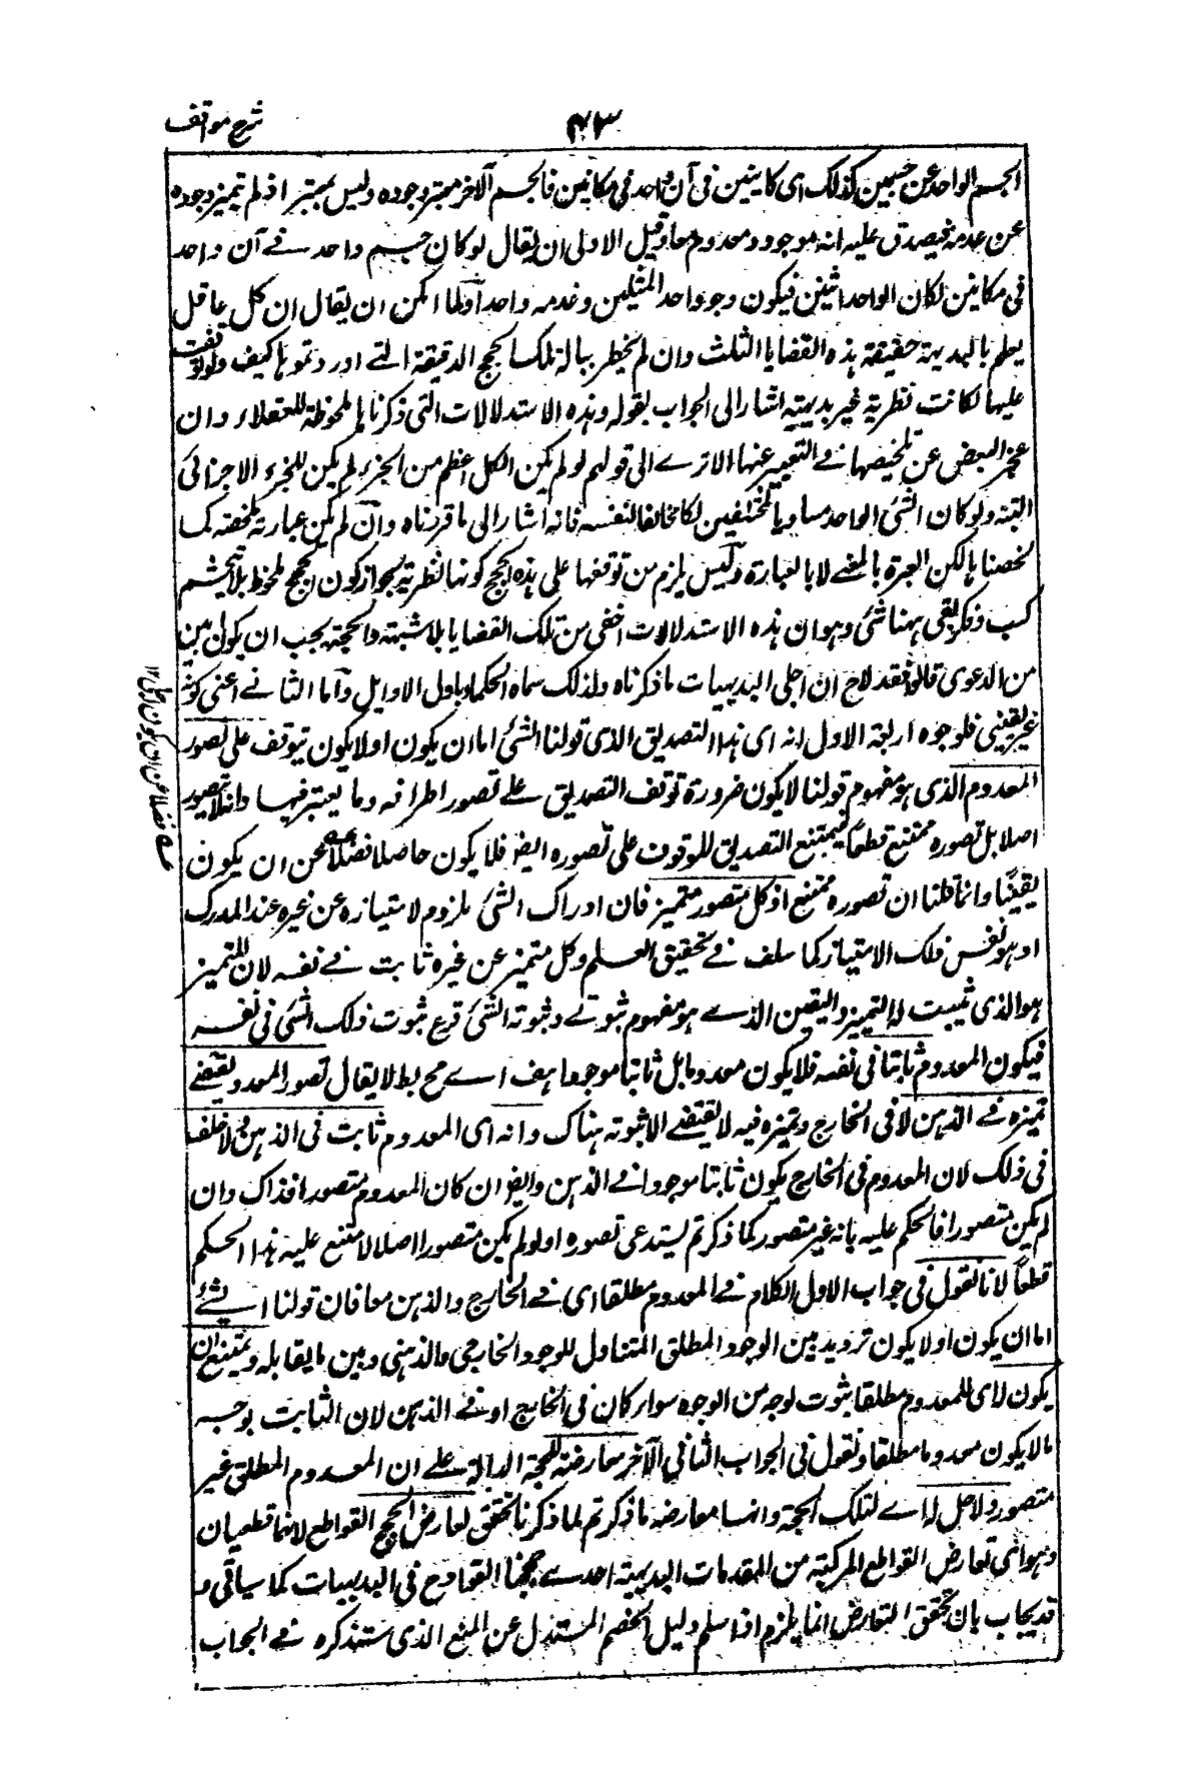 شرح مواقف
٤٣
الجسم الواحد عن جسمين كذلك اى كائنين فى آن واحد فى مكانين فالجسم الآخر معتبر وجوده وليس بمعتبر اذ لم يتميز وجوده
عن عدمه فيصدق عليه انه موجود ومعدوم معا وقيل الاولى ان يقال لو كان جسم واحد فى آن واحد
فى مكانين لكان الواحد اثنين فيكون وجود احد المثلين وعدمه واحدا ولما امكن ان يقال ان كل عاقل
يعلم بالبديهة حقيقة هذه القضايا الثلث وان لم يخطر بباله تلك الحجج الدقيقة التى اوردتموها كيف ولو توقفت
عليها لكانت نظرية غير بديهية اشار الى الجواب بقوله وهذه الاستدلالات التى ذكرناها ملحوظة للعقلاء وان
عجز البعض عن تلخيصها فى التعبير عنها الا ترى الى قولهم لو لم يكن الكل اعظم من الجزء لم يكن للجزء الآخر اثر
البتة ولو كان الشئ الواحد مساويا لمختلفين لكان مخالفا لنفسه فانه اشار الى ما قررناه وان لم يكن عبارته ملخصة كما
لخصناها لكن العبرة بالمعنى لا بالعبارة وليس يلزم من توقفها على هذه الحجج كونها نظرية لجواز كون الحجج ملحوظة بلا تجشم
كسب وفكر بقى ههنا شئ وهو ان هذه الاستدلالات اخفى من تلك القضايا بلا شبهة والحجة يجب ان يكون ابين
من الدعوى قالوا فقد لاح ان اجلى البديهيات ما ذكرناه ولذلك سماه الحكماء باول الاوايل واما الثانى اعنى كونه
غير يقينى فلوجوه اربعة الاول انه اى هذا التصديق الذى قولنا الشئ اما ان يكون او لا يكون يتوقف على تصور
المعدوم الذى هو مفهوم قولنا لا يكون ضرورة توقف التصديق على تصور اطرافه وما يعتبر فيها وانه لا يتصور
اصلا بل تصوره ممتنع قطعا فيمتنع التصديق الموقوف على تصوره ايضا فلا يكون حاصلا فضلا عن ان يكون
يقينيًا وانما قلنا ان تصوره ممتنع اذ كل متصور متميز فان ادراك الشئ ملزوم لامتيازه عن غيره عند المدرك
او هو نفس ذلك الامتياز كما سلف فى تحقيق العلم وكل متميز عن غيره ثابت فى نفسه لان المتميز
هو الذى ثبت له التميز والتعين الذى هو مفهوم ثبوتى وثبوته للشئ فرع ثبوت ذلك الشئ فى نفسه
فيكون المعدوم ثابتا فى نفسه فلا يكون معدوما بل ثابتا موجودا هف اى محج بط لا يقال تصور المعدوم يقتضى
تميزه فى الذهن لا فى الخارج وتميزه فيه لا يقتضى الا ثبوته هناك وانه اى المعدوم ثابت فى الذهن ولا خلف
فى ذلك لان المعدوم فى الخارج يكون ثابتا موجودا فى الذهن وايضا ان كان المعدوم متصورا فذاك وان
لم يكن متصورا فالحكم عليه بانه غير متصور كما ذكرتم يستدعى تصوره اذ لو لم يكن متصورا اصلا لامتنع عليه هذا الحكم
قطعاً لانا نقول فى جواب الاول الكلام فى المعدوم مطلقا اى فى الخارج والذهن معا فان قولنا الشئ
اما ان يكون او لا يكون ترديد بين الوجود المطلق المتناول للوجود الخارجى والذهنى وبين ما يقابله ويمتنع ان
يكون له اى للمعدوم مطلقا ثبوت بوجه من الوجوه سواء كان فى الخارج او فى الذهن لان الثابت بوجه
ما لا يكون معدوما مطلقا ونقول فى الجواب الثانى الآخر معارضة للحجة الدالة على ان المعدوم المطلق غير
متصور ولا حل لها اى لتلك الحجة وانها معارضة ما ذكرتم لما ذكرنا تحقق تعارض الحجج القواطع لانهما قطعيان
وهو اى تعارض القواطع المركبة من المقدمات البديهية احدى حججنا القوادح فى البديهيات كما سيأتى و
قد يجاب بان تحقق التعارض انما يلزم اذا سلم دليل الخصم المستدل عن المنع الذى ستذكره فى الجواب